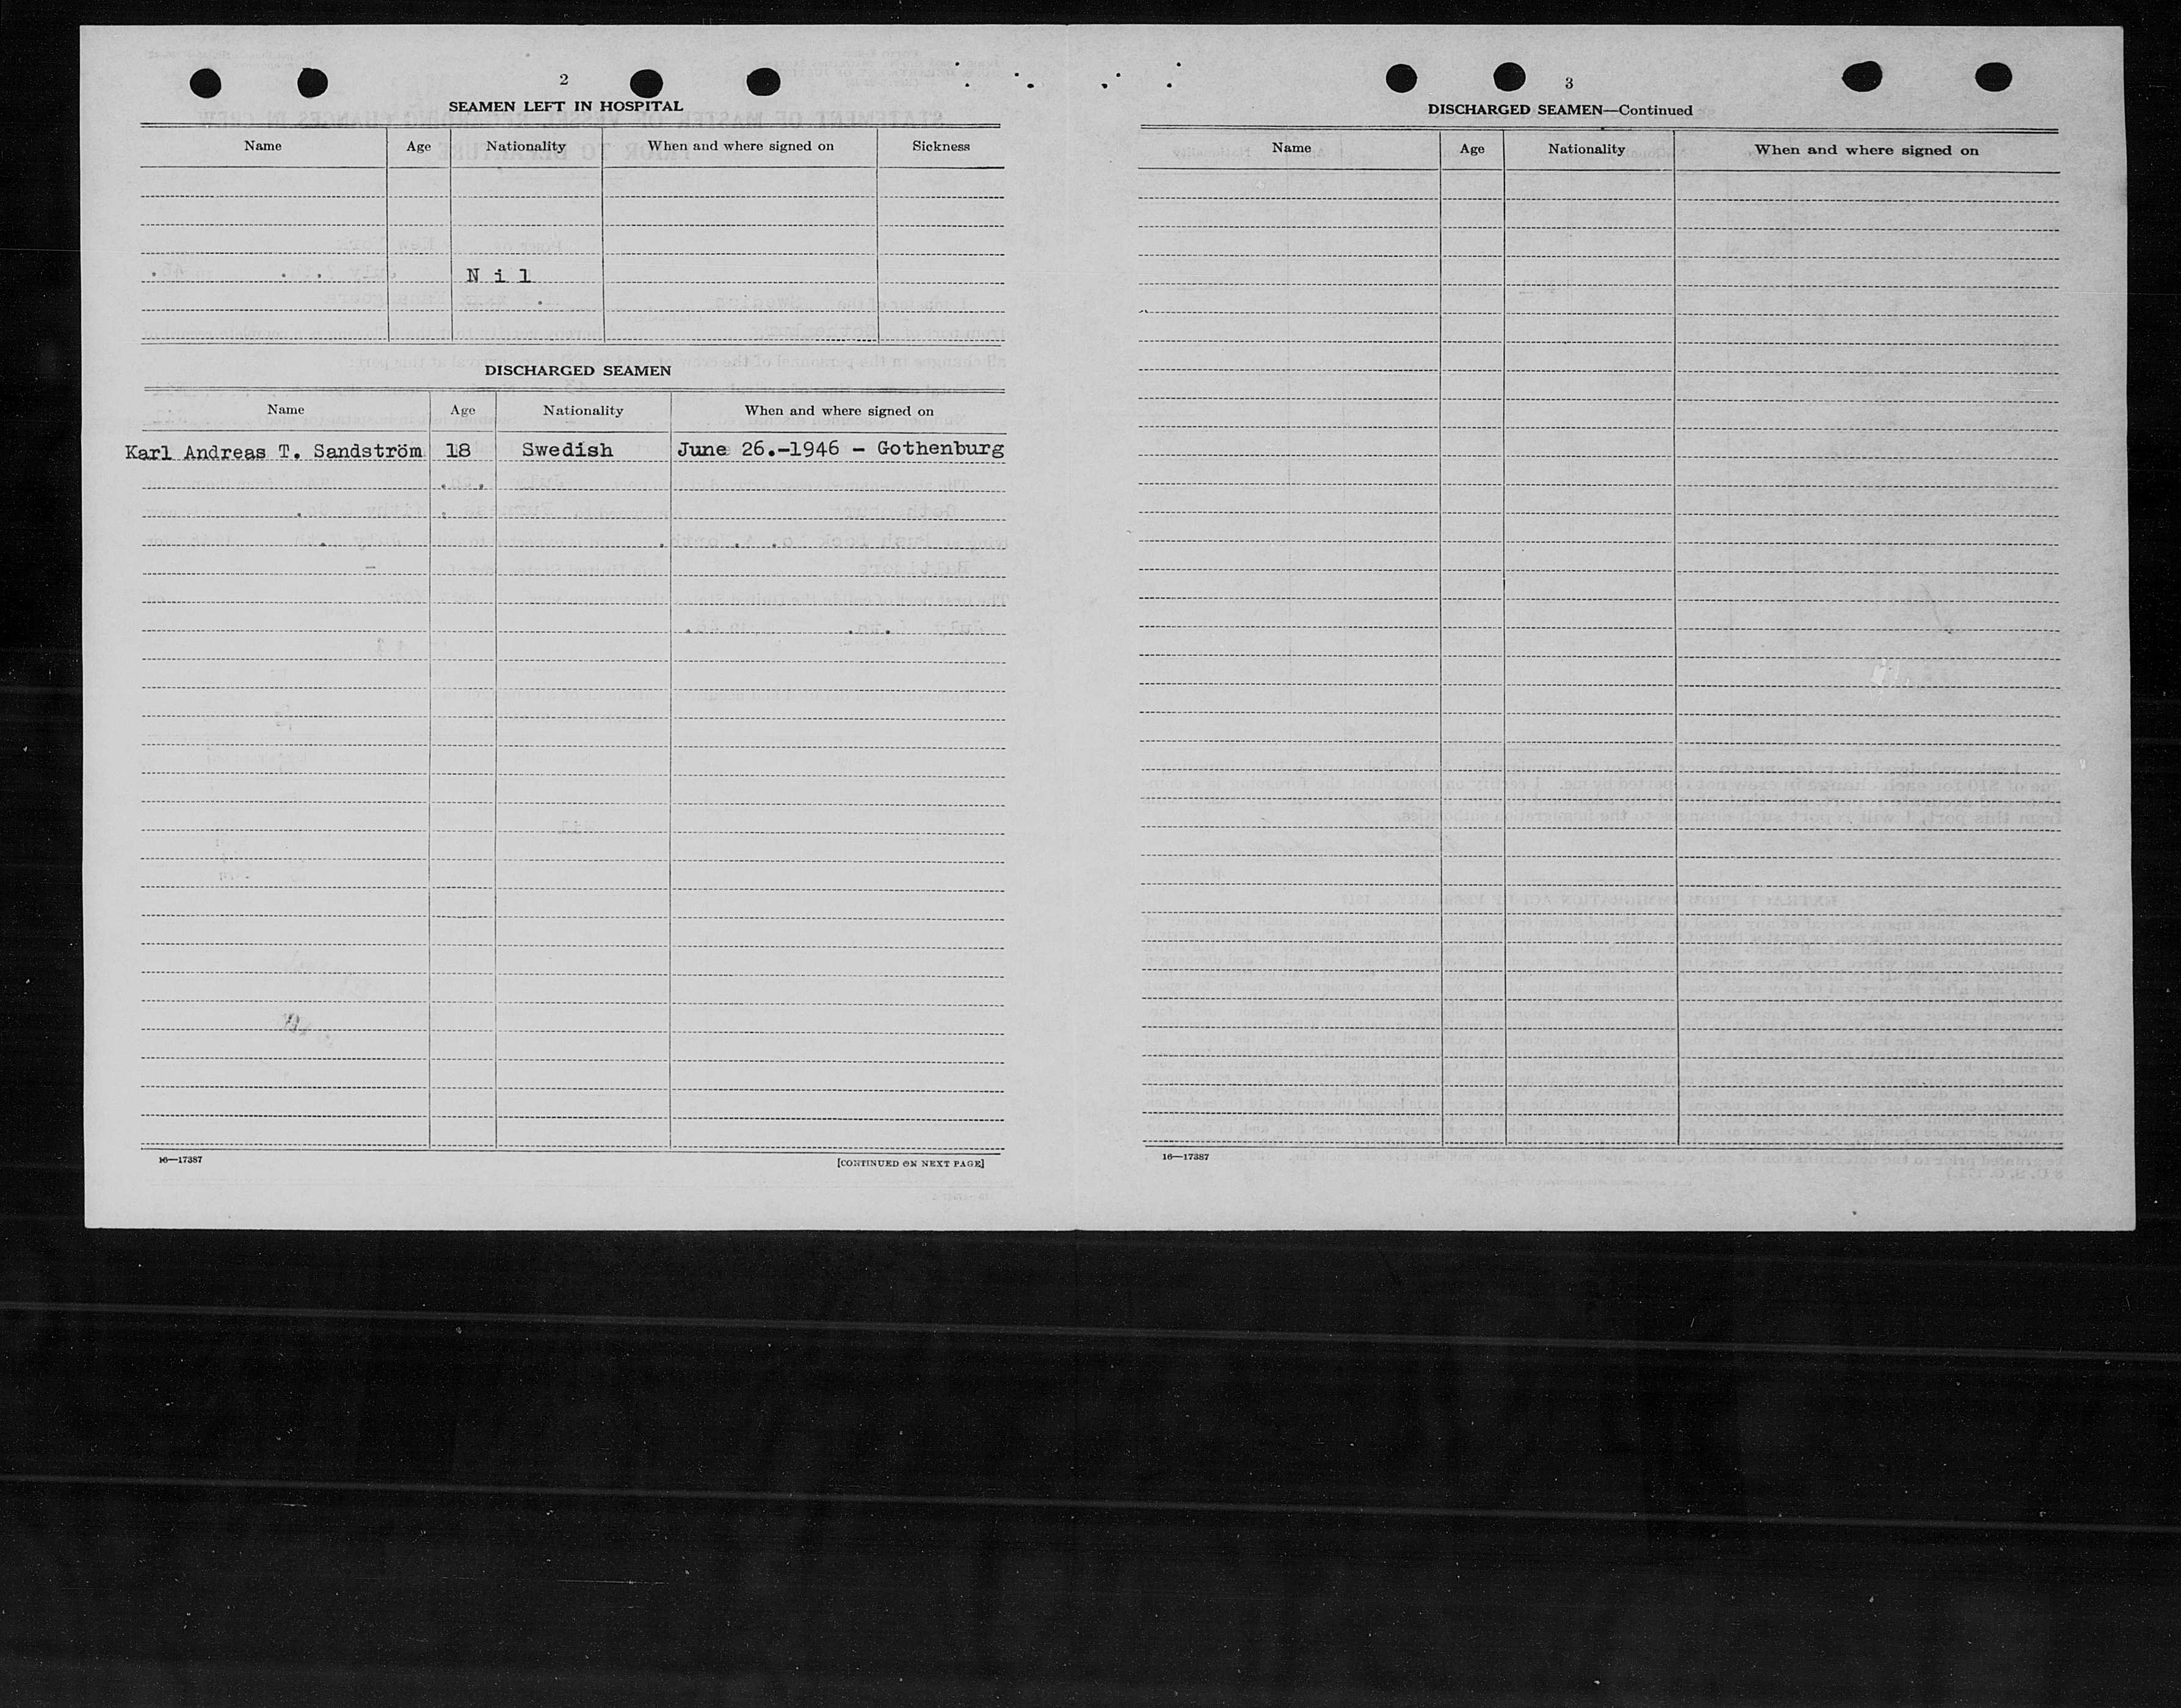 2
SEAMEN LEFT IN HOSPITAL
Name Age Nationality When and where signed on Sickness
N i l
DISCHARGED SEAMEN
Name Age Nationality When and where signed on
Karl Andreas T. Sandström 18 Swedish June 26.-1946 - Gothenburg
16—17387 [CONTINUED ON NEXT PAGE]
3
DISCHARGED SEAMEN—Continued
Name Age Nationality When and where signed on
16—17387